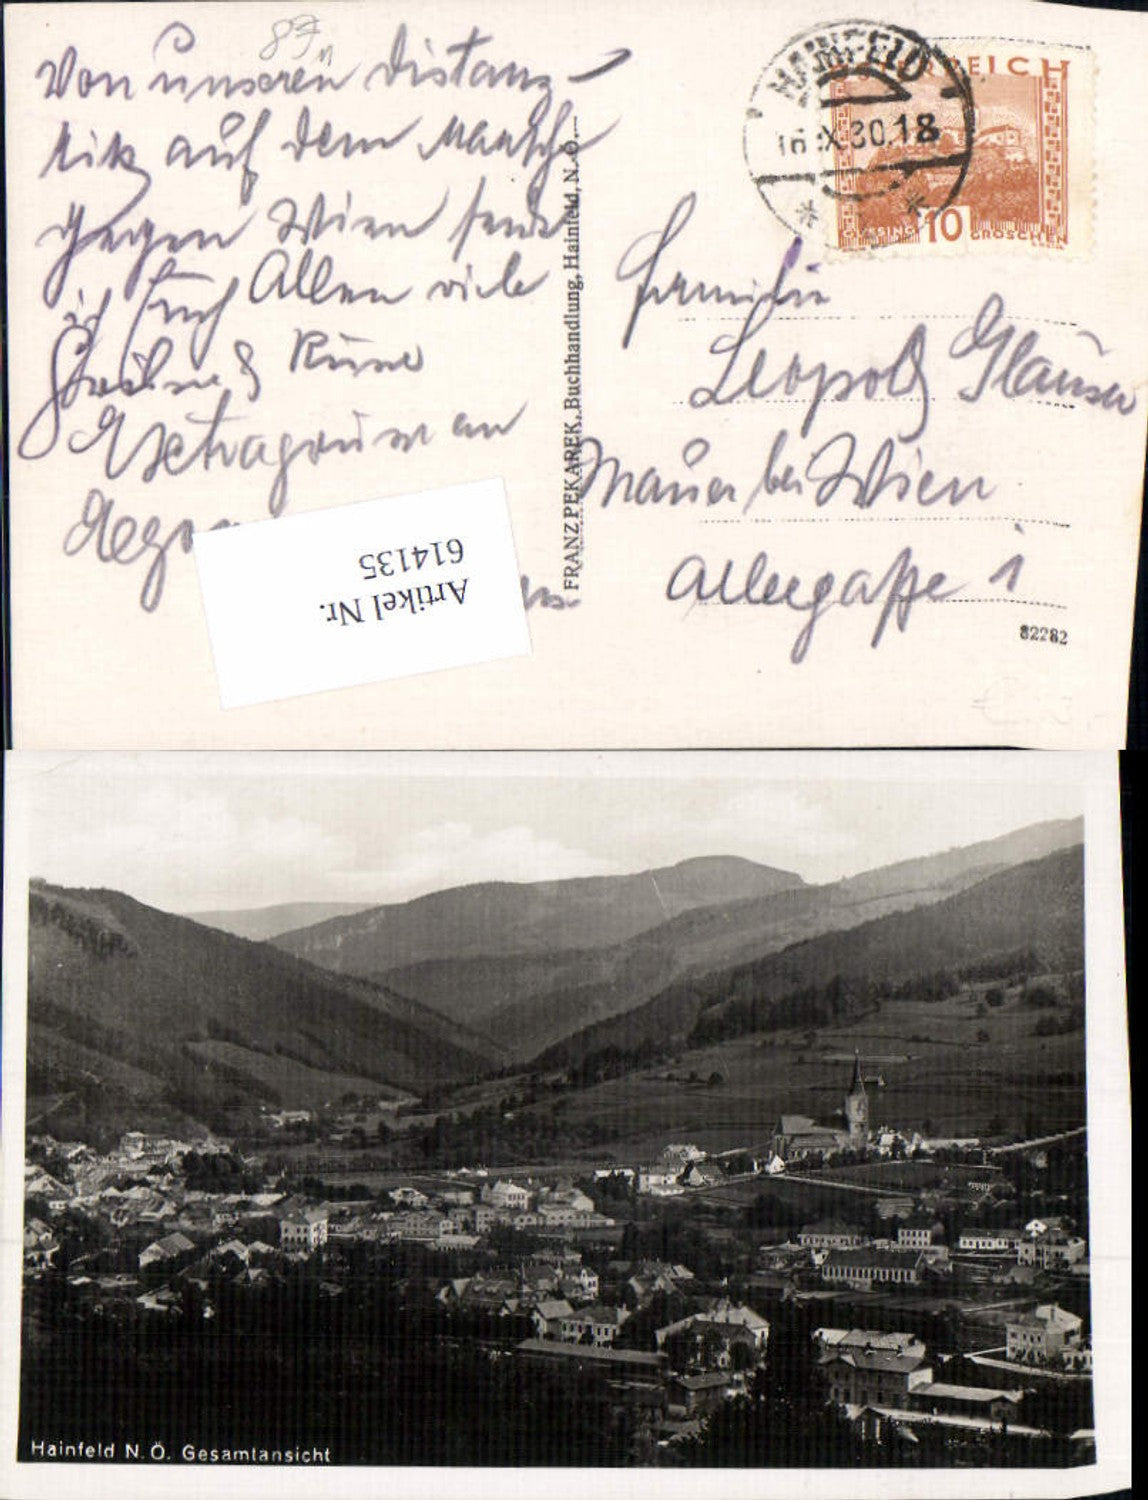 87
Von unseren Distanz-
ritz auf dem Marsche
gegen Wien sende
ich Euch Allen viele
Grüße &
an
HAINFELD
16.IX.30.18
* *
ÖSTERREICH
10
GROSCHEN
FRANZ PEKAREK, Buchhandlung, Hainfeld, N. Ö.
Familie
Leopold Glauser
Mauer bei Wien
gaße 1
82282
Artikel Nr.
614135
Hainfeld N. Ö. Gesamtansicht